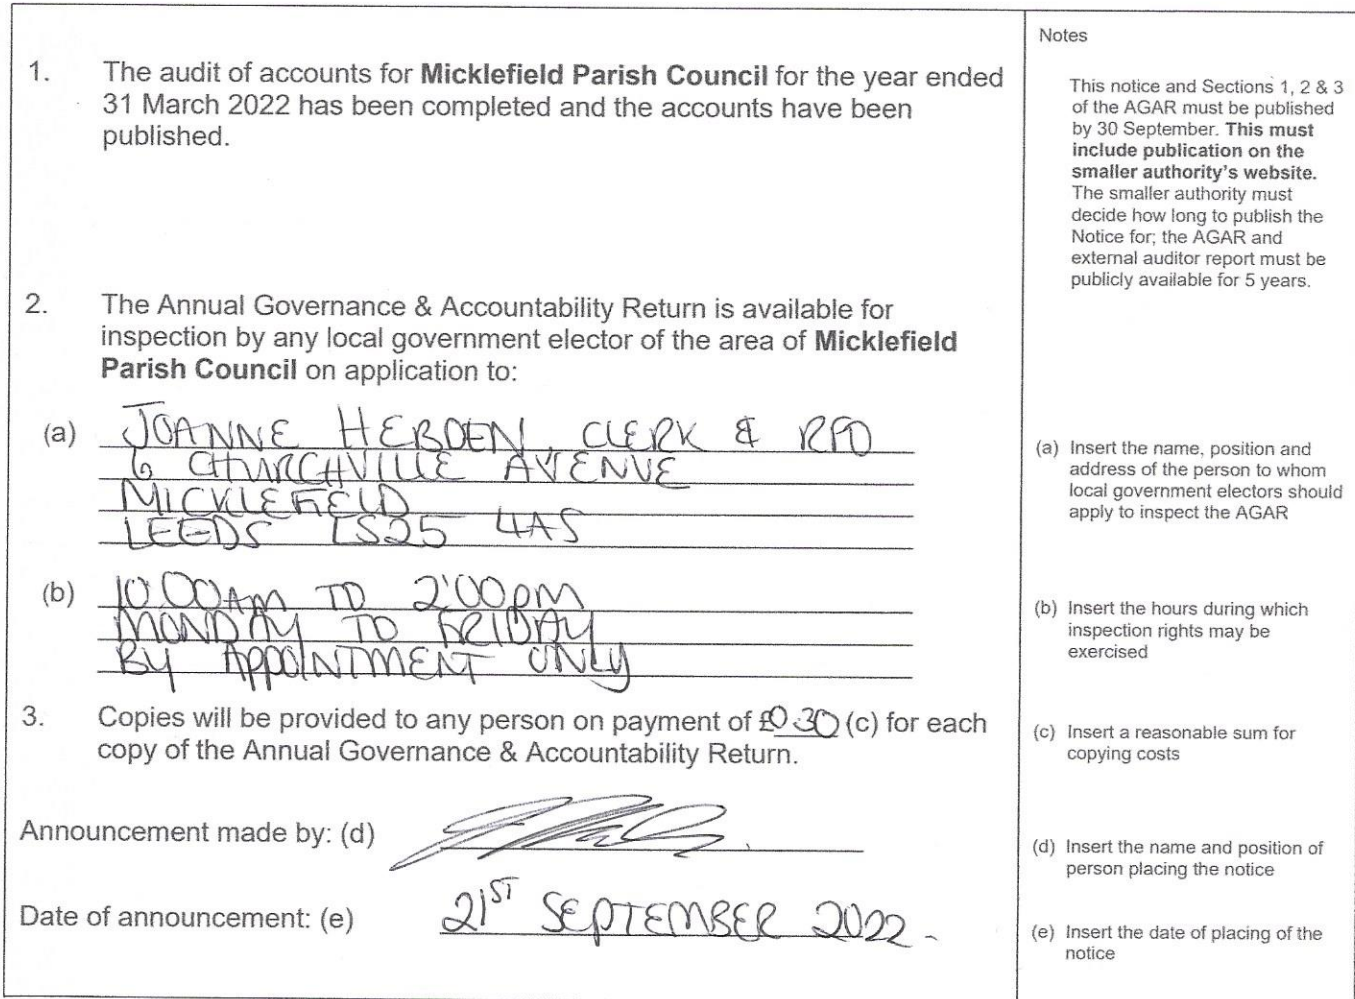 1. The audit of accounts for Micklefield Parish Council for the year ended
31 March 2022 has been completed and the accounts have been
published.
2. The Annual Governance & Accountability Return is available for
inspection by any local government elector of the area of Micklefield
Parish Council on application to:
(a) JOANNE HEBDEN, CLERK & RFO
6 CHURCHVILLE AVENUE
MICKLEFIELD
LEEDS LS25 4AS
(b) 10.00AM TO 2.00PM
MONDAY TO FRIDAY
BY APPOINTMENT ONLY
3. Copies will be provided to any person on payment of £0.30 (c) for each
copy of the Annual Governance & Accountability Return.
Announcement made by: (d)
Date of announcement: (e) 21ST SEPTEMBER 2022.
Notes
This notice and Sections 1, 2 & 3
of the AGAR must be published
by 30 September. This must
include publication on the
smaller authority's website.
The smaller authority must
decide how long to publish the
Notice for; the AGAR and
external auditor report must be
publicly available for 5 years.
(a) Insert the name, position and
address of the person to whom
local government electors should
apply to inspect the AGAR
(b) Insert the hours during which
inspection rights may be
exercised
(c) Insert a reasonable sum for
copying costs
(d) Insert the name and position of
person placing the notice
(e) Insert the date of placing of the
notice